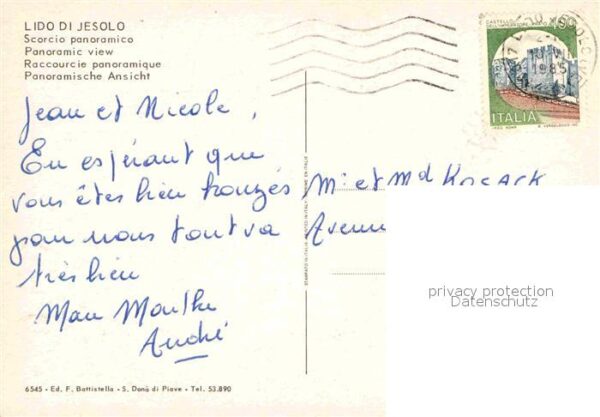 LIDO DI JESOLO
Scorcio panoramico
Panoramic view
Raccourcie panoramique
Panoramische Ansicht
Jean et Nicole,
En espérant que
vous êtes bien
pour nous tout va
très bien
André
Mr et Md Kocack
Avenu
STAMPATO IN ITALIA
CASTELLO
ITALIA
1985
privacy protection
Datenschutz
6545 - Ed. F. Battistella - S. Donà di Piave - Tel. 53.890